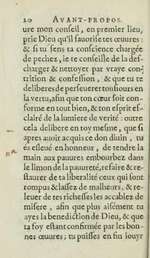 20 AVANT-PROPOS.
ure mon conseil, en premier lieu,
prie Dieu qu'il fauorise tes œuures :
& si tu sens ta conscience chargée
de pechez, ie te conseille de la des-
charger & nettoyer par vraye con-
trition & confession, & que tu te
deliberes de perseuerer tousiours en
la vertu, afin que ton cœur soit con-
forme en tout bien, & ton esprit es-
clairé de la lumiere de verité : outre
cela delibere en toy mesme, que si
apres auoir acquis ce don diuin, tu
és esleué en honneur, de tendre la
main aux pauures embourbez dans
le limon de la pauureté, refaire & re-
staurer de ta liberalité ceux qui sont
rompus & lassez de malheurs, & re-
leuer de tes richesses les accablez de
misere, afin que plus aisément tu
ayes la benediction de Dieu, & que
ta foy estant confirmée par les bon-
nes œuures, tu puisses en fin iouyr